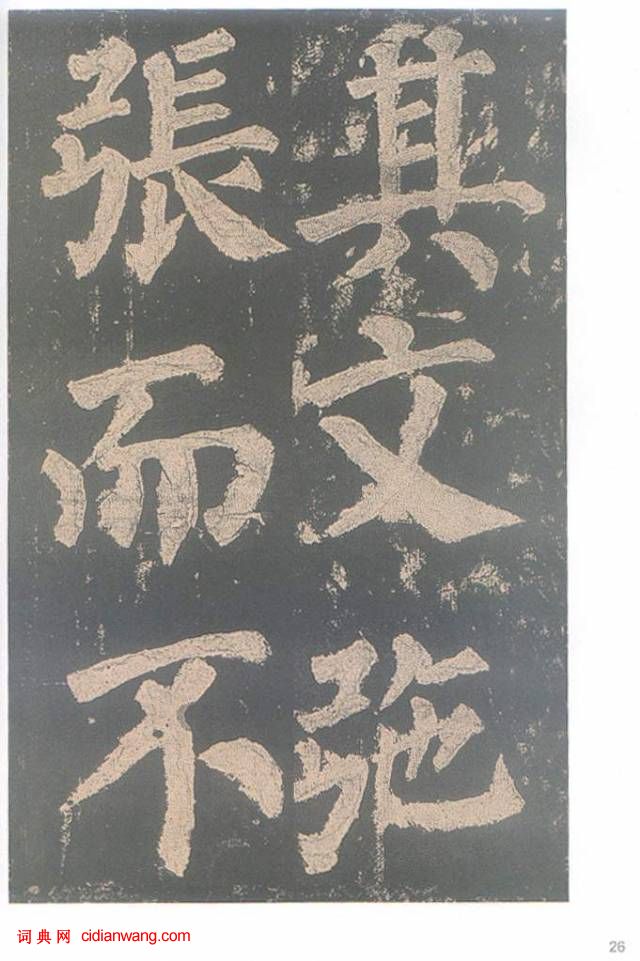 其文弛
張而不
词典网 cidianwang.com
26